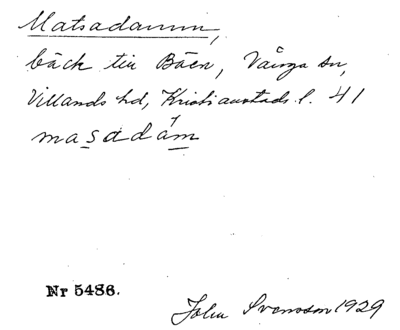 Matsadamm,
bäck till Båen, Vånga sn,
Villands hd, Kristianstads l. 41
masadám
Nr 5486.
John Svensson 1929